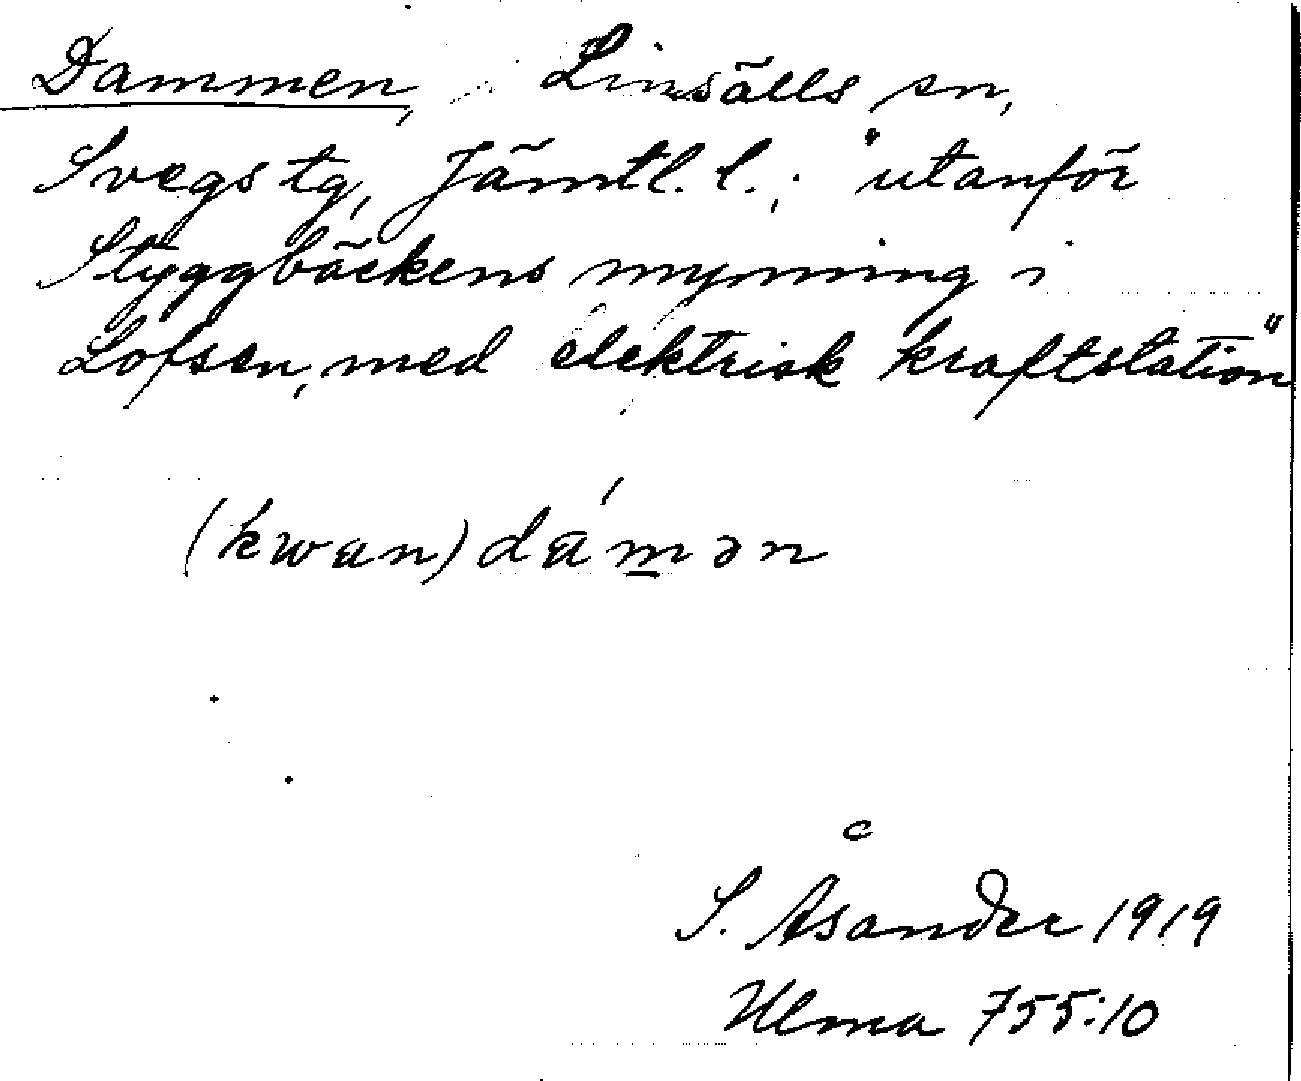 Dammen, Linsälls sn,
Svegs tg, Jämtl. l.; "utanför
Styggbäckens mynning i
Lofsen, med elektrisk kraftstation"
(kwan) dám̲ən
S. Åsander 1919
Ulma 755:10